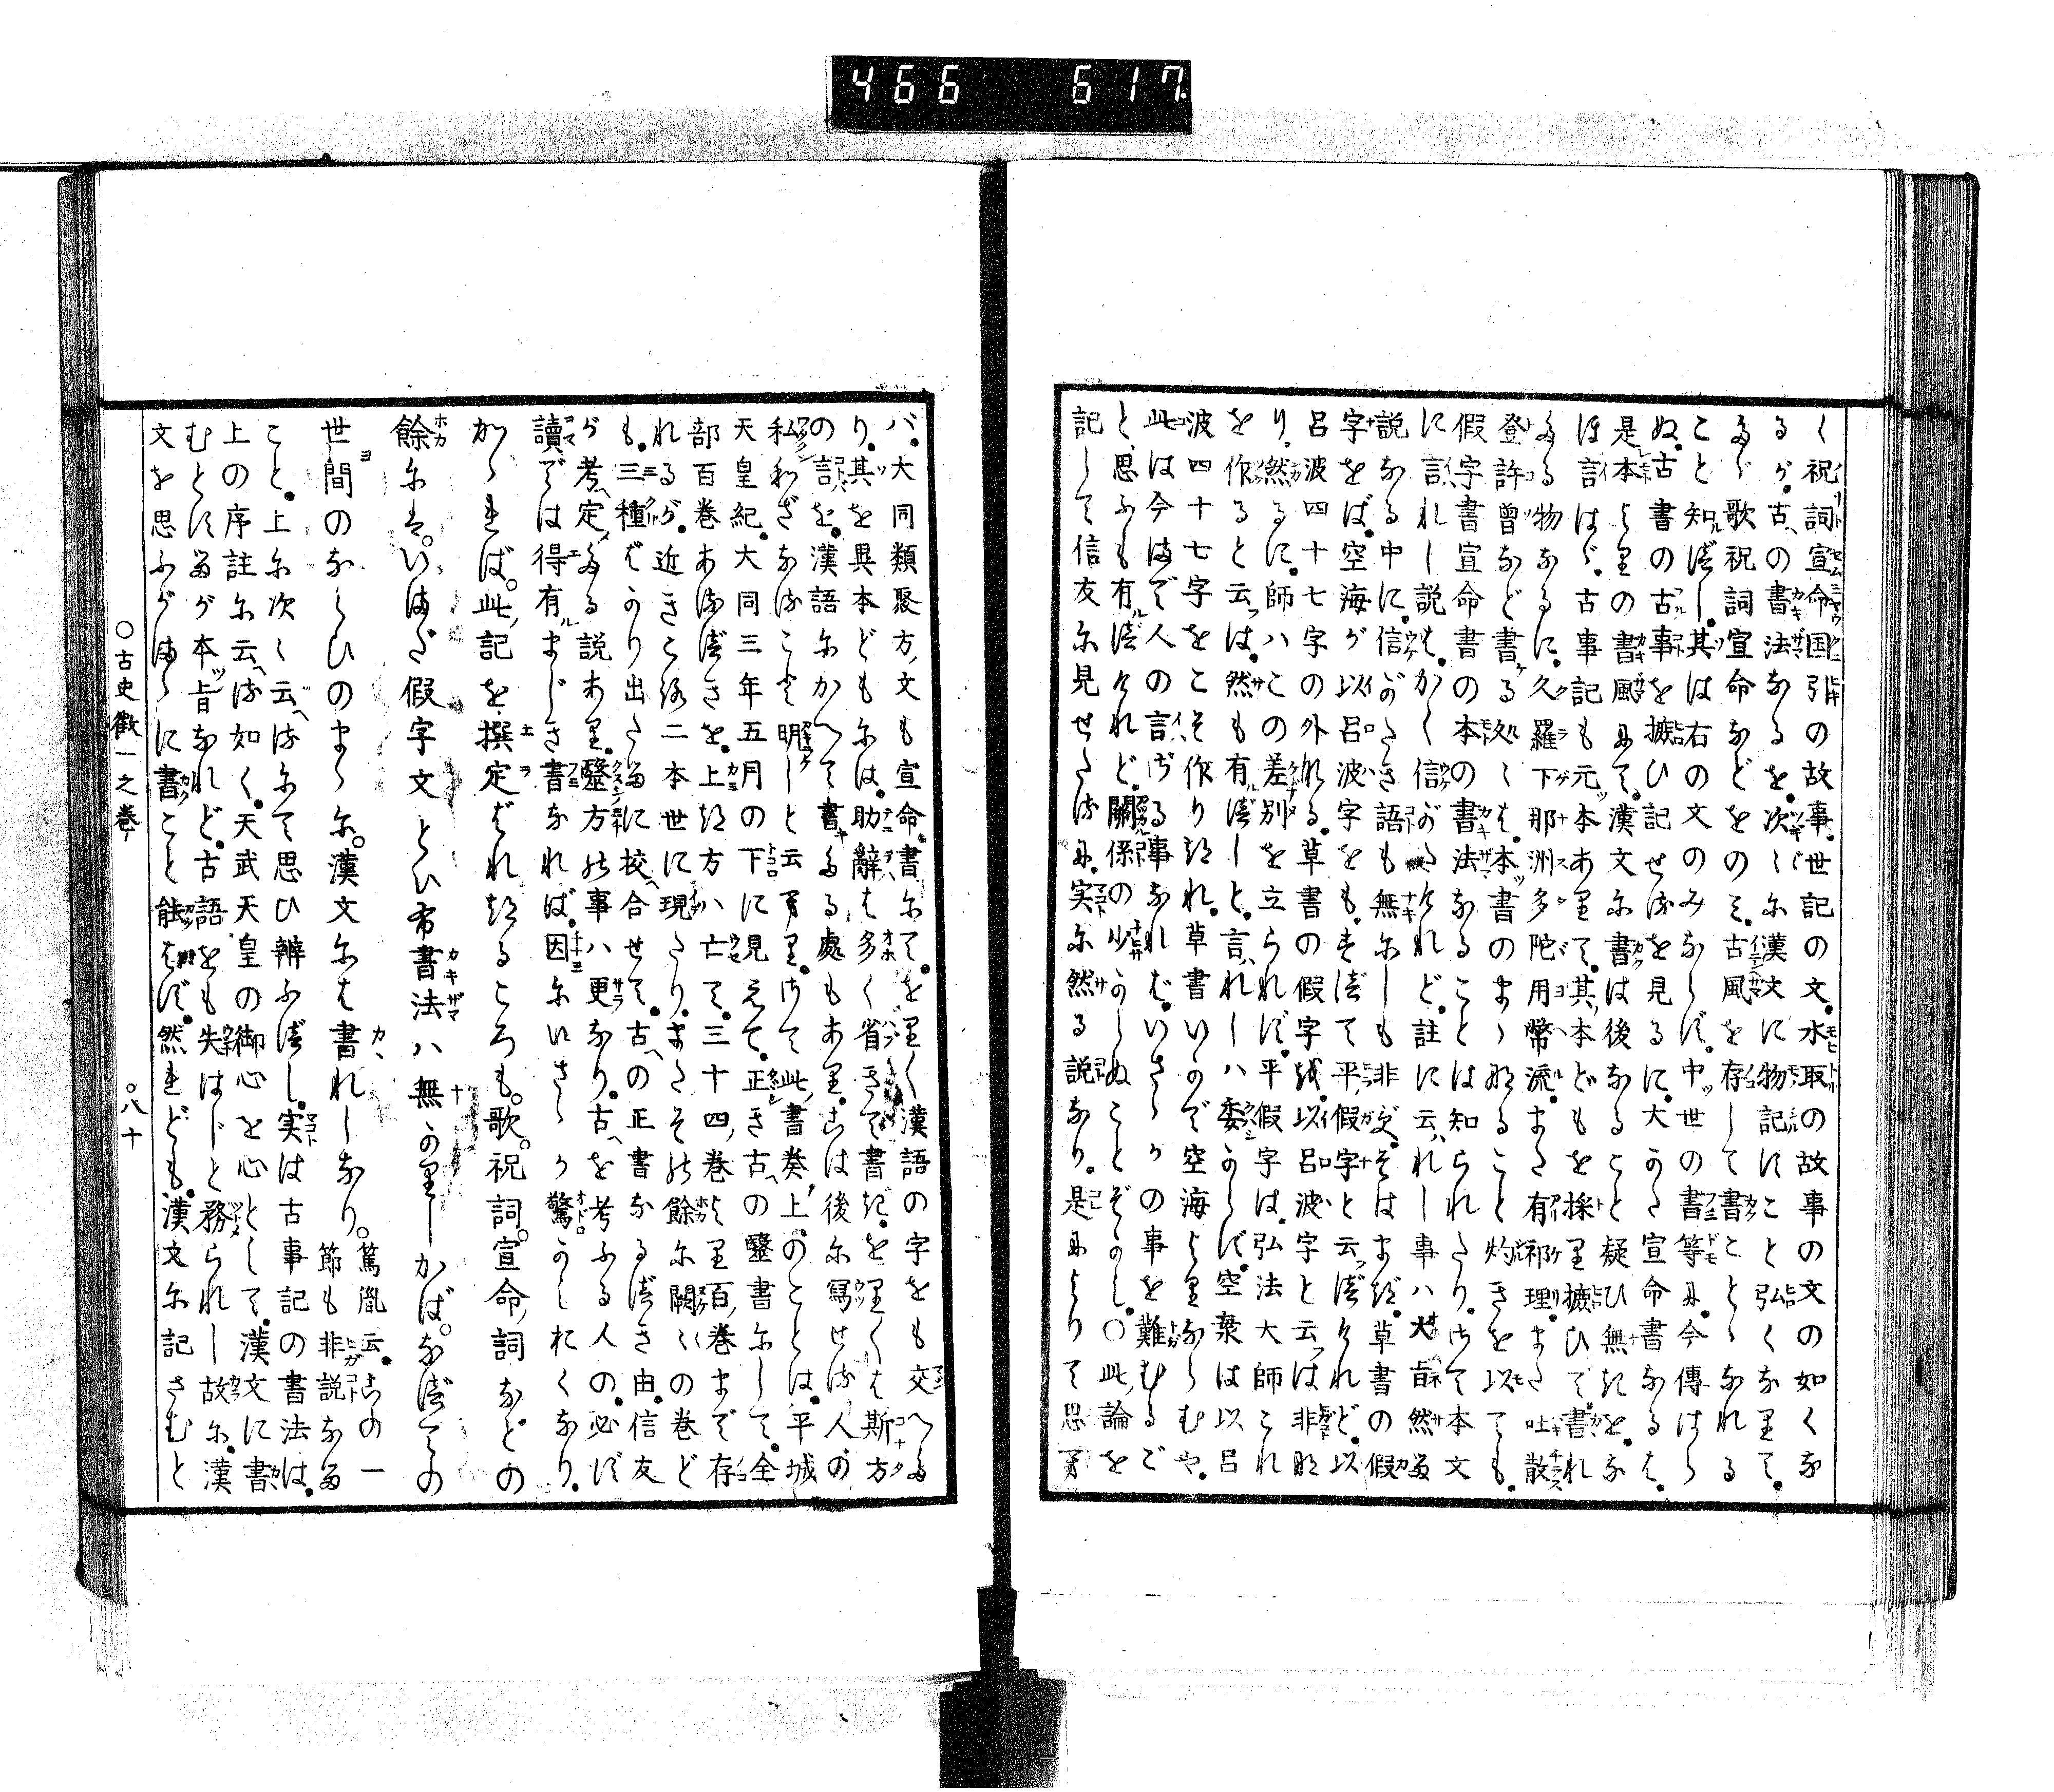 466 617
く祝詞宣命国引の故事。世記の文。水取の故事の文の如くな
るが。古の書法なるを。次々に漢文に物記すこと弘くなりて。
たゞ歌祝詞宣命などをのミ。古風を存して書くことゝなれる
こと知べし。其は右の文のみならず。中世の書等に。今傳はら
ぬ。古書の古事を摭ひ記せるを見るに。大かた宣命書なるは。
是本よりの書風にて。漢文に書くは後なることと疑ひ無きを。な
ほ言はゞ。古事記も元本ありて。其本どもを採り摭ひて書れ
たる物なるに。久羅下那洲多陀用幣流。また有祁理。また吐散
登許曾など書る処々は。本書のまゝなること灼きを以ても。
假字書宣命書の本の書法なることは知られたり。さて本文
に言れし説も。かく信がたけれど。註に云れし事ハ大旨然る
説なる中に。信がたき語も無にしも非ず。そはまづ草書の假
字をば。空海が以呂波字をも。すべて平假字と云べけれど。以
呂波四十七字の外なる。草書の假字を。以呂波字と云は非な
り。然るに。師ハこの差別を立られず。平假字は。弘法大師これ
を作ると云は。然も有べしと。言れしハ委からず。空衆は以呂
波四十七字をこそ作りけれ。草書いので空海よりならむや。
此は今まで人の言ざる事なれば。いさゝかの事を難むるご
と。思ふも有べけれど。關係の少からぬことぞかし。○此論を
記して信友に見せたるに。実に然る説なり。是によりて思へ
バ。大同類聚方文も宣命書にて。をりく漢語の字をも交へた
り。其を異本どもには。助辭を多く省きて書き。をりくは斯方
の言を。漢語にかへて書たる處もあり。こは後に寫せる人の
私わざなること明しと云へり。さて此書奏上のことは。平城
天皇紀。大同三年五月の下に見えて。正き古の醫書にして。全
部百巻あるべきを。上け方ハ亡て。三十四巻より百巻まで存
れるが。近きころ二本世に現たり。またその餘に闕々の巻ど
も。三種ばかり出たるに校合せて。古の正書なるべき由。信友
が考定たる説あり。醫方の事ハ更なり。古を考ふる人の。必ず
讀では得有まじき書なれば。因にいさゝか驚かしおくなり。
かゝれば。此記を撰定ばれけるころも。歌。祝詞。宣命詞などの
餘には。いまだ假字文といふ書法ハ無かりしかば。なべての
世間のならひのまゝに。漢文には書れしなり。篤胤云。この一
節も非説なる
こと。上に次々云へるにて思ひ辨ふべし。実は古事記の書法は。
上の序註に云へる如く。天武天皇の御心を心として。漢文に書
むとするが本旨なれど。古語をも失はじと務られし故に。漢
文を思ふがまゝに書こと能はず。然れども。漢文に記さむと
○古史徴一之巻 ○八十